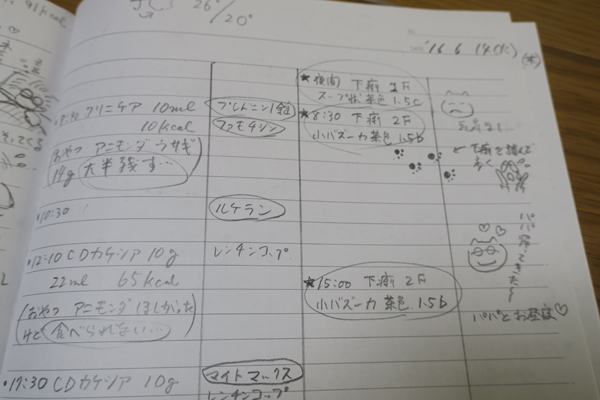 26°
20°
'16. 6. 14(火)
クリニケア 10ml
10kcal
おやつ アニモンダ ウサギ
19g 大半残す…
プレドニン1錠
ファモチジン
★夜間 下痢 2F
スープ状 茶色 1.5c
★8:30 下痢 2F
小バズーカ茶色 1.5b
•10:30
ルケラン
•12:10 CDカケシア 10g
22ml 65kcal
レンチンコップ
おやつ アニモンダ ほしかった
けど 食べられない…
★15:00 下痢 2F
小バズーカ 茶色 1.5b
パパ帰ってきた〜
パパとお昼寝♡
•17:30 CDカケシア 10g
マイトマックス
レンチンコップ